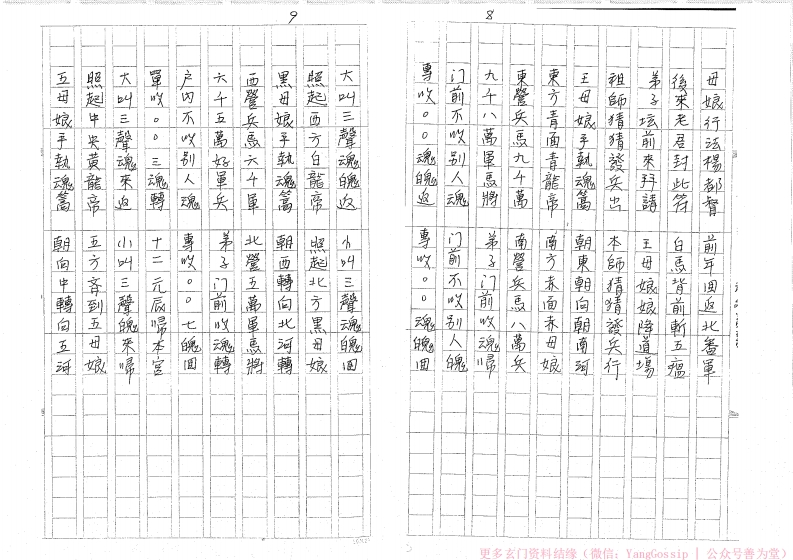 8
母娘行法楊都督 前年回返北番軍
後來老君封此符 白馬背前斬五瘟
弟子坛前來拜請 王母娘娘降道場
祖師猜猜發兵出 本師猜猜發兵行
王母娘手執魂篙 朝東朝向朝南河
東方青面青龍帝 南方赤面赤母娘
東營兵馬九千萬 南營兵馬八萬兵
九千八萬軍馬將 弟子门前收魂歸
门前不收别人魂 门前不收别人魄
專收○○魂魄返 專收○○魂魄回
9
大叫三聲魂魄返 小叫三聲魂魄回
照起西方白龍帝 照起北方黑母娘
黑母娘手執魂篙 朝西轉向北河轉
西營兵馬六千軍 北營五萬軍馬將
六千五萬好軍兵 弟子门前收魂歸
户内不收别人魂 專收○○七魄回
單收○○三魂轉 十二元辰歸本宮
大叫三聲魂來返 小叫三聲魄來歸
照起中央黃龍帝 五方齊到五母娘
五母娘手執魂篙 朝向中轉向五河
更多玄门资料结缘（微信：YangGossip | 公众号善为堂）